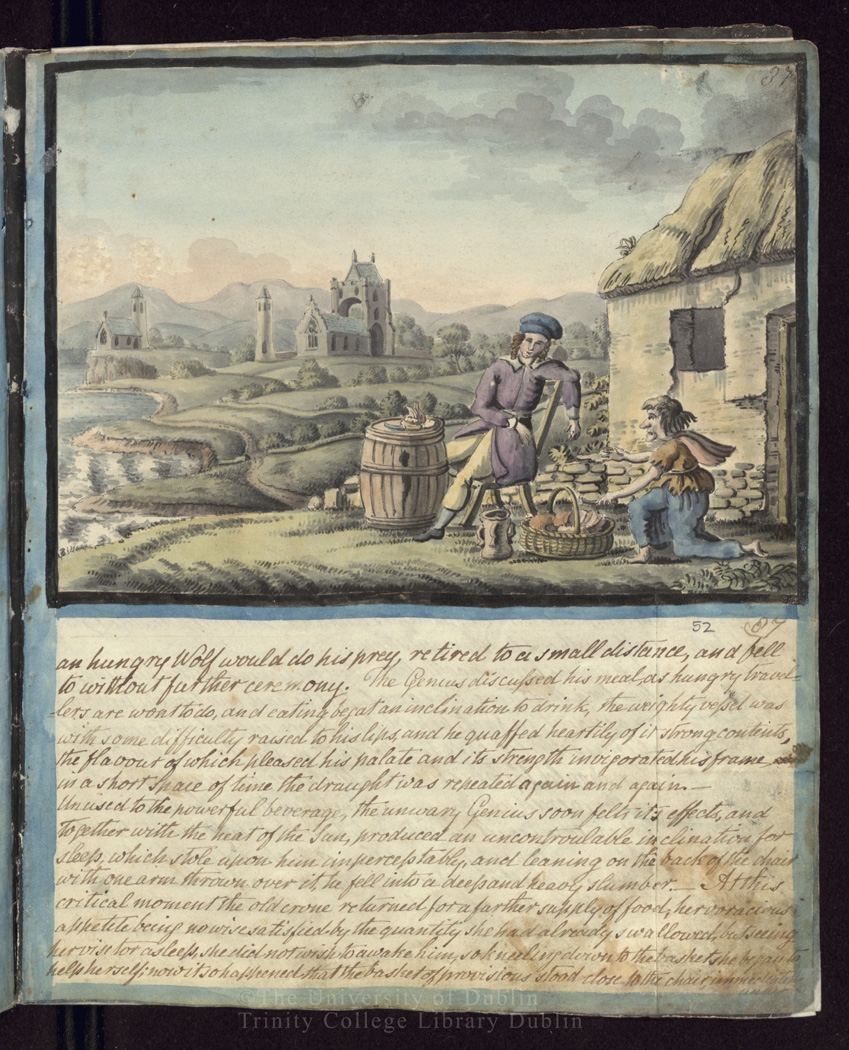 87
52
87
an hungry Wolf would do his prey, retired to a small distance, and fell
to without further ceremony. The Genius discussed his meal, as hungry travel-
-lers are wont to do, and eating begat an inclination to drink, the weighty vessel was
with some difficulty raised to his lips, and he quaffed heartily of it strong contents,
the flavour of which pleased his palate and its strength invigorated his frame,
in a short space of time the draught was repeated again and again. —
Unused to the powerful beverage, the unwary Genius soon felt its effects, and
together with the heat of the Sun, produced an uncontroulable inclination for
sleep, which stole upon him imperceptably, and leaning on the back of the chair
with one arm thrown over it, he fell into a deep and heavy slumber. — At this
critical moment the old crone returned for a farther supply of food, her voracious
appetite being nowise satisfied by the quantity she had already swallowed, but seeing
her visitor asleep, she did not wish to awake him, so kneeling down to the basket she began to
help herself; now it so happened, that the basket of provisions stood close to the chair
©The University of Dublin
Trinity College Library Dublin